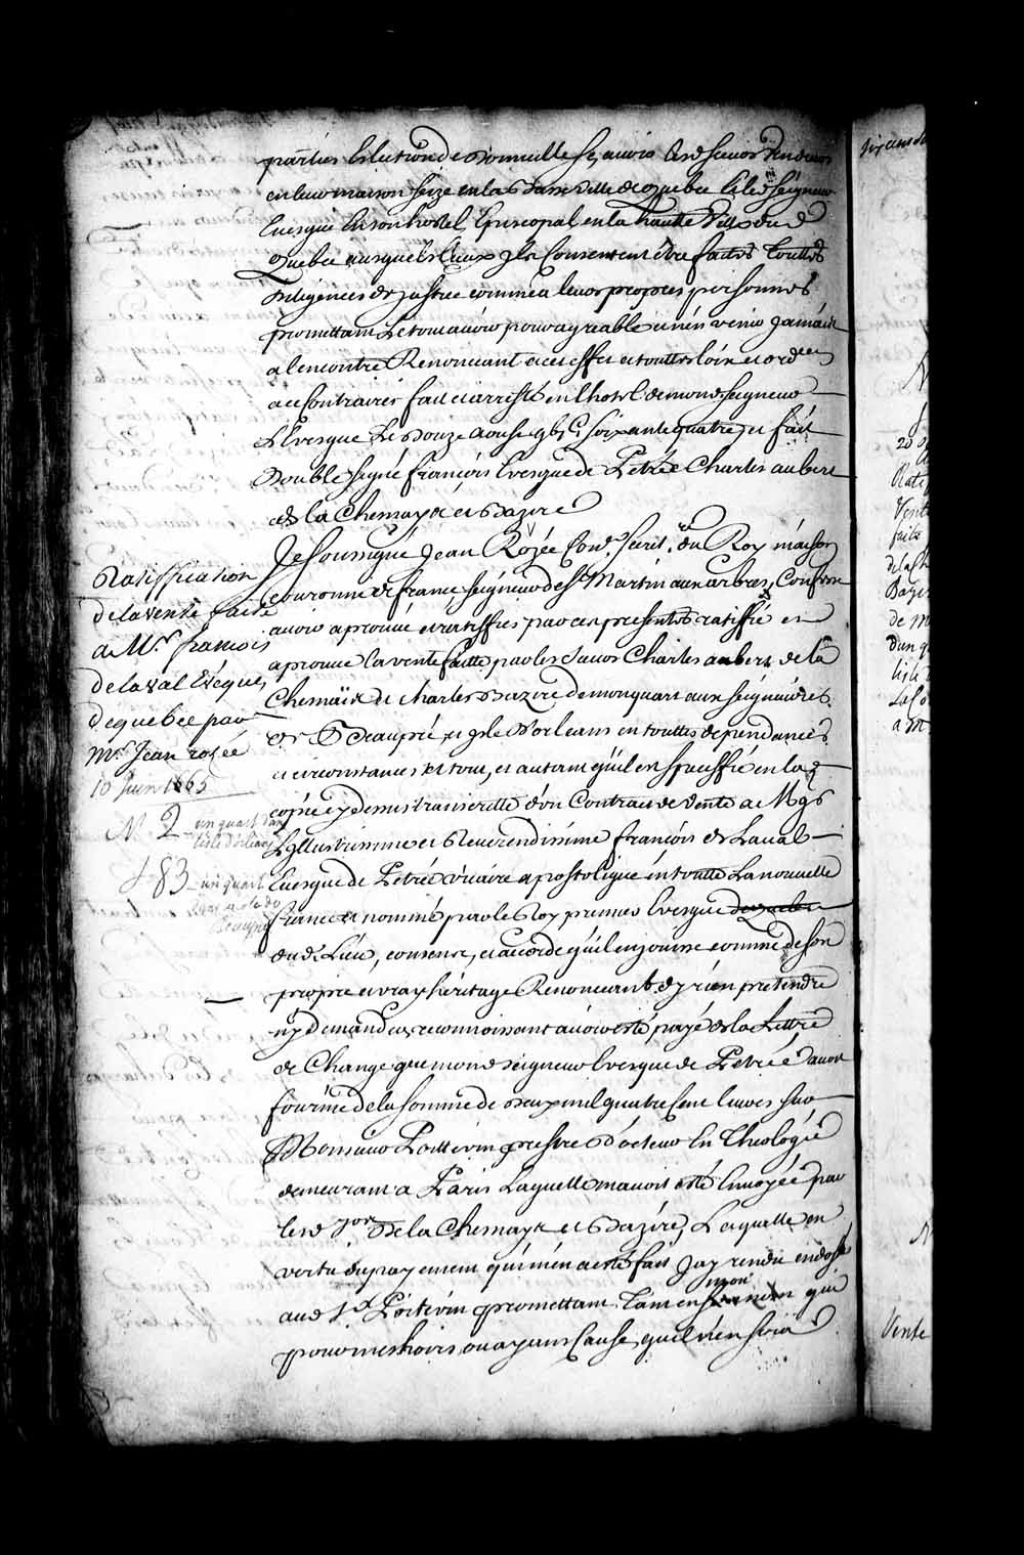 parties Election de Domicille Sçavoir Lesd. sieurs Vendeurs
en leur maison size en la Basse Ville de Quebec Et led. Seigneur
Evesque En son hostel Episcopal en la hautte Ville dud.
Quebec ausquels lieux Ils Consentent être faittes Touttes
diligences de Justice comme a leurs propres personnes
promettant Le tout avoir pour agreable et n'en venir jamais
a lencontre Renonceant a cet effet a touttes loix et ordces
a ce Contraires fait et arresté en l'hostel de mond. Seigneur
L'Evesque Le Douze aoust gbjc. Soixante quatre, et fait
Double Signé françois Evesque de Petrée Charles aubert
de la Chenaye et Bazire
Je Soussigné Jean Rozée Conr. Secrit. du Roy maison
couronne de france, Seigneur de St Martin aux arbres, Confesse
avoir aprouvé et ratiffié par ces presentes ratiffie et
aprouve la vente faitte par les Sieurs Charles aubert de la
Chenaïe et charles Bazire de mon quart aux Seigneuries
de Beaupré et Isle d'orleans en touttes dependances
et circonstances le tout, et autant qu'il en spéciffié en la d.
copie cy dessus transcritte d'un Contract de Vente a Mgr
L'Illustrissime et Reverendissime françois de Laval
Evesque de Petrée vicaire apostolique en toutte La nouvelle
france et nommé par le Roy premier Evesque de quebec
dud. Lieu, consens, et accorde qu'il en jouisse comme de son
propre et vray héritage Renonceant d'y rien prétendre
n'y demander, reconnoissant avoir esté payé de la Lettre
de Change que mond. Seigneur Evesque de Petrée avoit
fournie de la Somme de Deux mil quatre Cent livres sur
Monsieur Poittevin prestre Docteur En Theologie
demeurant a Paris Laquelle m'avoit esté Envoyée par
lesd. srs De la Chenaye et Bazire, Laquelle en
vertu du payement qui m'en a esté fait Jay rendue endossé
aud. Sr. Poitevin promettant Tant en mon nom que
pour mes hoirs ou ayans Cause, qu'il n'en sera
Ratiffication
de la vente faite
a Mr. francois
de laval Evêque,
de quebec par
Mr. Jean rozée
10 Juin 1665
N. 2 un quart dans
l'isle d'orleans
483 un quart
dans la côte de
Beaupré
Vente
faite
de la Ch
Bazir
de M
Dun q
Lisle
La Co
a M
Vente